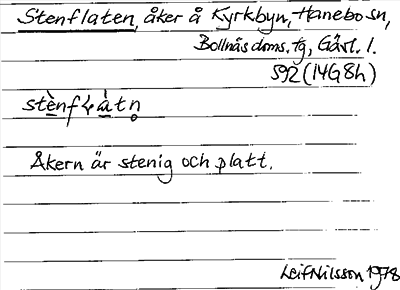 Stenflaten, åker å Kyrkbyn, Hanebo sn,
Bollnäs doms. tg, Gävl. l.
592 (14G8h)
stènfꞎàtn̥
Åkern är stenig och platt.
Leif Nilsson 1978